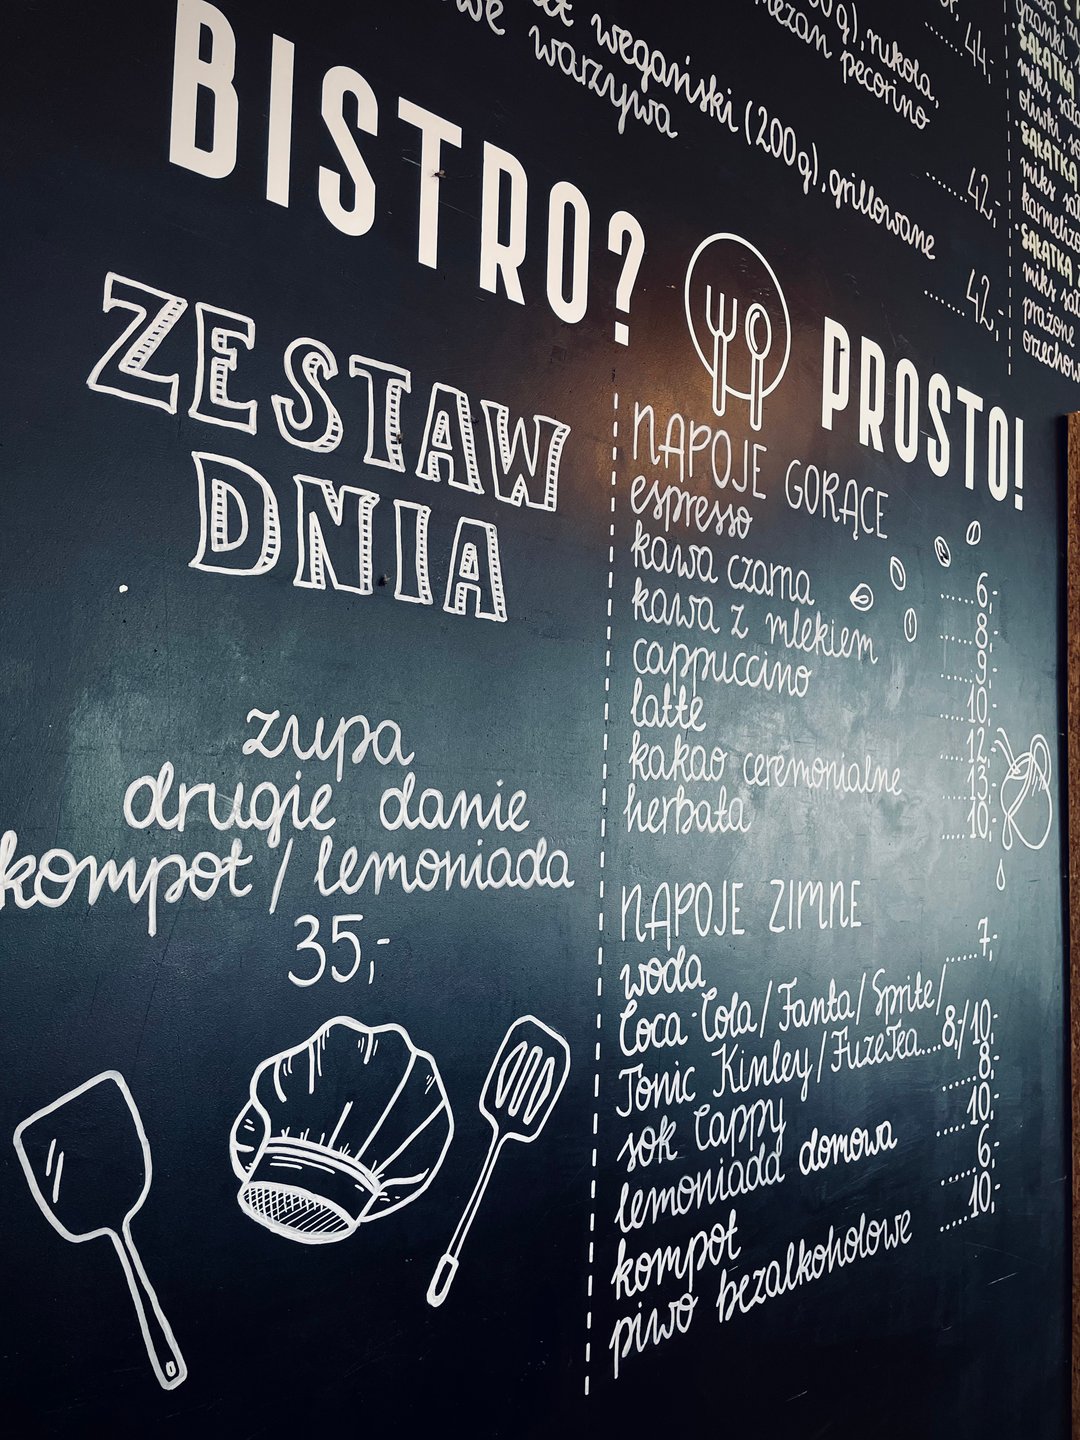 wegański (200g), grillowane
warzywa
.......42,-
00g), rukola,
pecorino
......44,-
.......42,-
SAŁATKA
SAŁATKA
SAŁATKA
prażone
BISTRO? PROSTO!
ZESTAW
DNIA
zupa
drugie danie
kompot / lemoniada
35,-
NAPOJE GORĄCE
espresso ......6,-
kawa czarna ......8,-
kawa z mlekiem ......9,-
cappuccino .....10,-
latte .....12,-
kakao ceremonialne .....13,-
herbata .....10,-
NAPOJE ZIMNE
woda ......7,-
Coca-Cola/Fanta/Sprite/
Tonic Kinley/FuzeTea....8,-/10,-
sok Cappy ......8,-
lemoniada domowa .....10,-
kompot ......6,-
piwo bezalkoholowe .....10,-